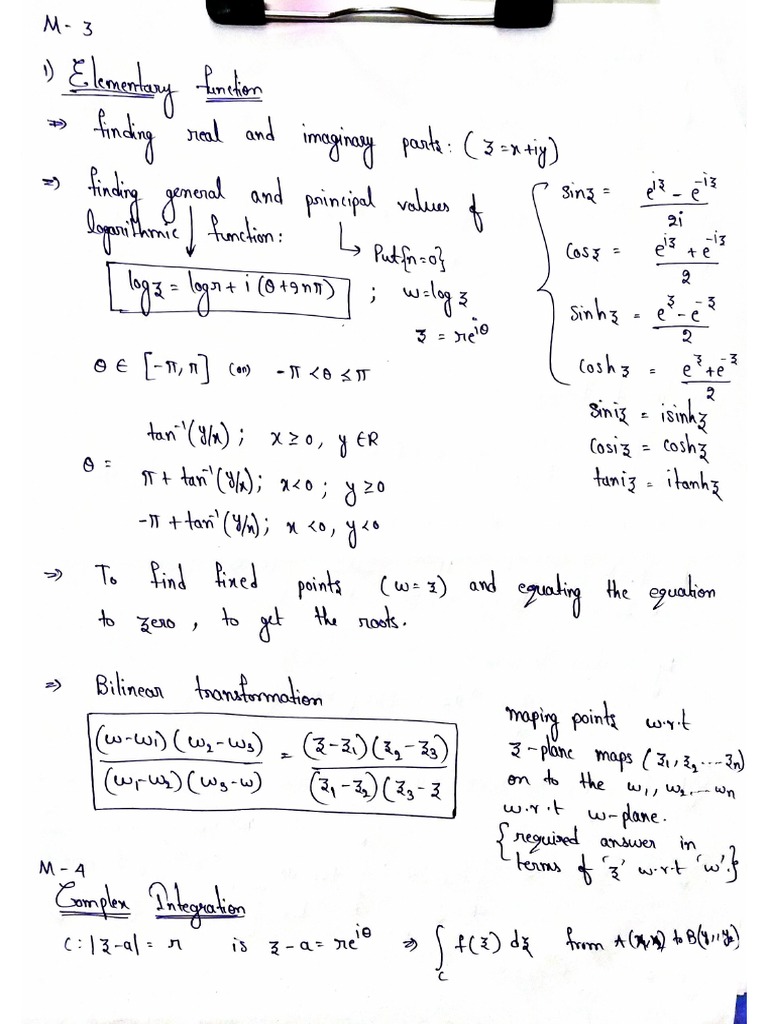 M - 3
1) Elementary function
⇒ finding real and imaginary parts: (z = x+iy)
⇒ finding general and principal values of
logarithmic function:
↳ Put{n=0}
log z = log r + i (θ+2nπ) ; w = log z
z = re^{iθ}
θ ∈ [-π, π] (or) -π < θ ≤ π
sin z = (e^{iz} - e^{-iz})/2i
cos z = (e^{iz} + e^{-iz})/2
sinh z = (e^z - e^{-z})/2
cosh z = (e^z + e^{-z})/2
sin iz = i sinh z
cos iz = cosh z
tan iz = i tanh z
θ =
tan⁻¹(y/x) ; x ≥ 0, y ∈ R
π + tan⁻¹(y/x); x<0 ; y ≥ 0
-π + tan⁻¹(y/x); x <0, y<0
⇒ To find fixed points (w = z) and equating the equation
to zero, to get the roots.
⇒ Bilinear transformation
(w-w₁)(w₂-w₃)/(w₁-w₂)(w₃-w) = (z-z₁)(z₂-z₃)/(z₁-z₂)(z₃-z
maping points w.r.t
z-plane maps (z₁, z₂ ... zₙ)
on to the w₁, w₂, ... wₙ
w.r.t w-plane.
{required answer in
terms of 'z' w.r.t 'w'.}
M - 4
Complex Integration
C : |z-a| = r is z-a = re^{iθ} ⇒ ∫_C f(z) dz from A( ) to B(y₁, y₂)